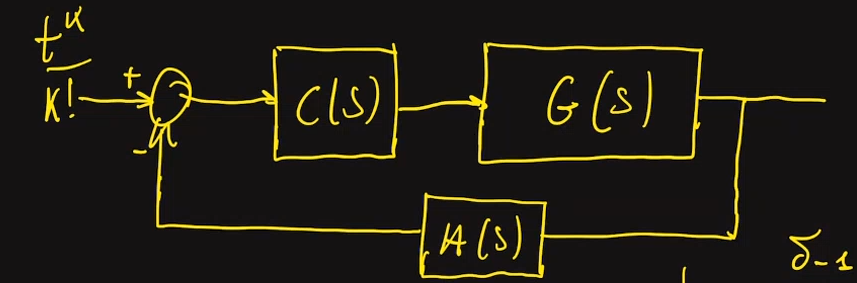 t^k
k!
+
-
C(s)
G(s)
H(s)
δ-1